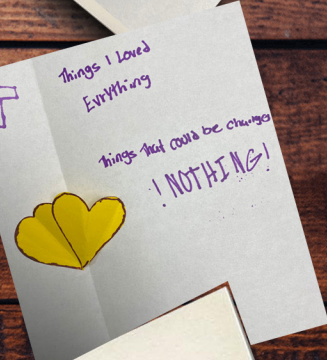 Things I Loved
Evrything
Things that could be change
! NOTHING!
T